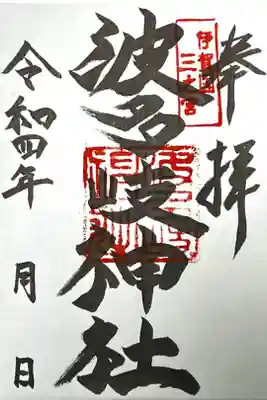 奉拝
伊賀國
三之宮
波多岐神社
令和四年
月
日